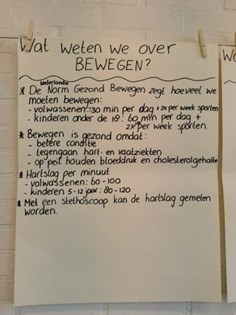 Wat weten we over
BEWEGEN?
* De Nederlandse Norm Gezond Bewegen zegt hoeveel we
moeten bewegen:
- volwassenen: 30 min per dag + 2x per week sporten
- kinderen onder de 18: 60 min per dag +
2x per week sporten.
* Bewegen is gezond omdat:
- betere conditie
- tegengaan hart- en vaatziekten
- op peil houden bloeddruk en cholesterolgehalte
* Hartslag per minuut
- volwassenen: 60-100
- kinderen 5-12 jaar: 80-120
* Met een stethoscoop kan de hartslag gemeten
worden.